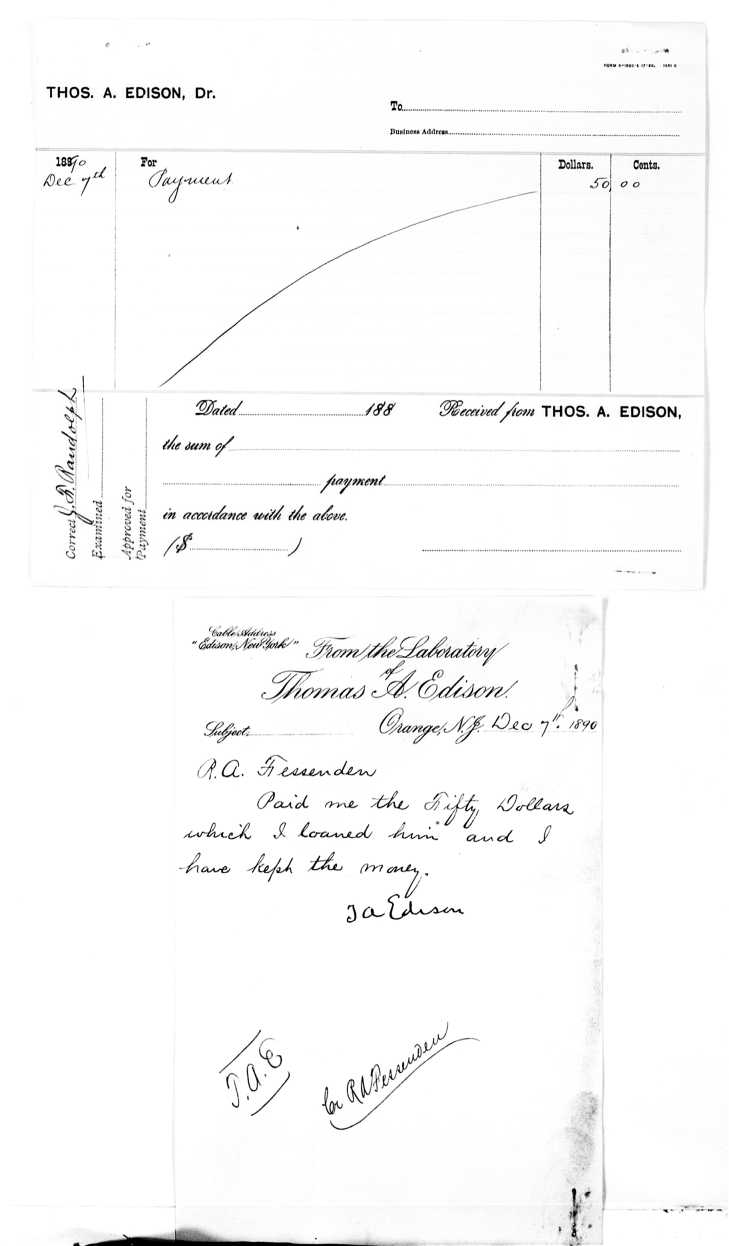 THOS. A. EDISON, Dr.
To
Business Address
1890 For Dollars. Cents.
Dec 7th Payment 50 00
Correct J. F. Randolph
Examined
Approved for Payment
Dated 188 Received from THOS. A. EDISON,
the sum of
payment
in accordance with the above.
($ )
Cable Address
"Edison, New York"
From the Laboratory
of
Thomas A. Edison.
Subject. Orange, N.J. Dec 7". 1890
R. A. Fessenden
Paid me the Fifty Dollars
which I loaned him and I
have keph the money.
T A Edison
T. A. E
Cr R A Fessenden